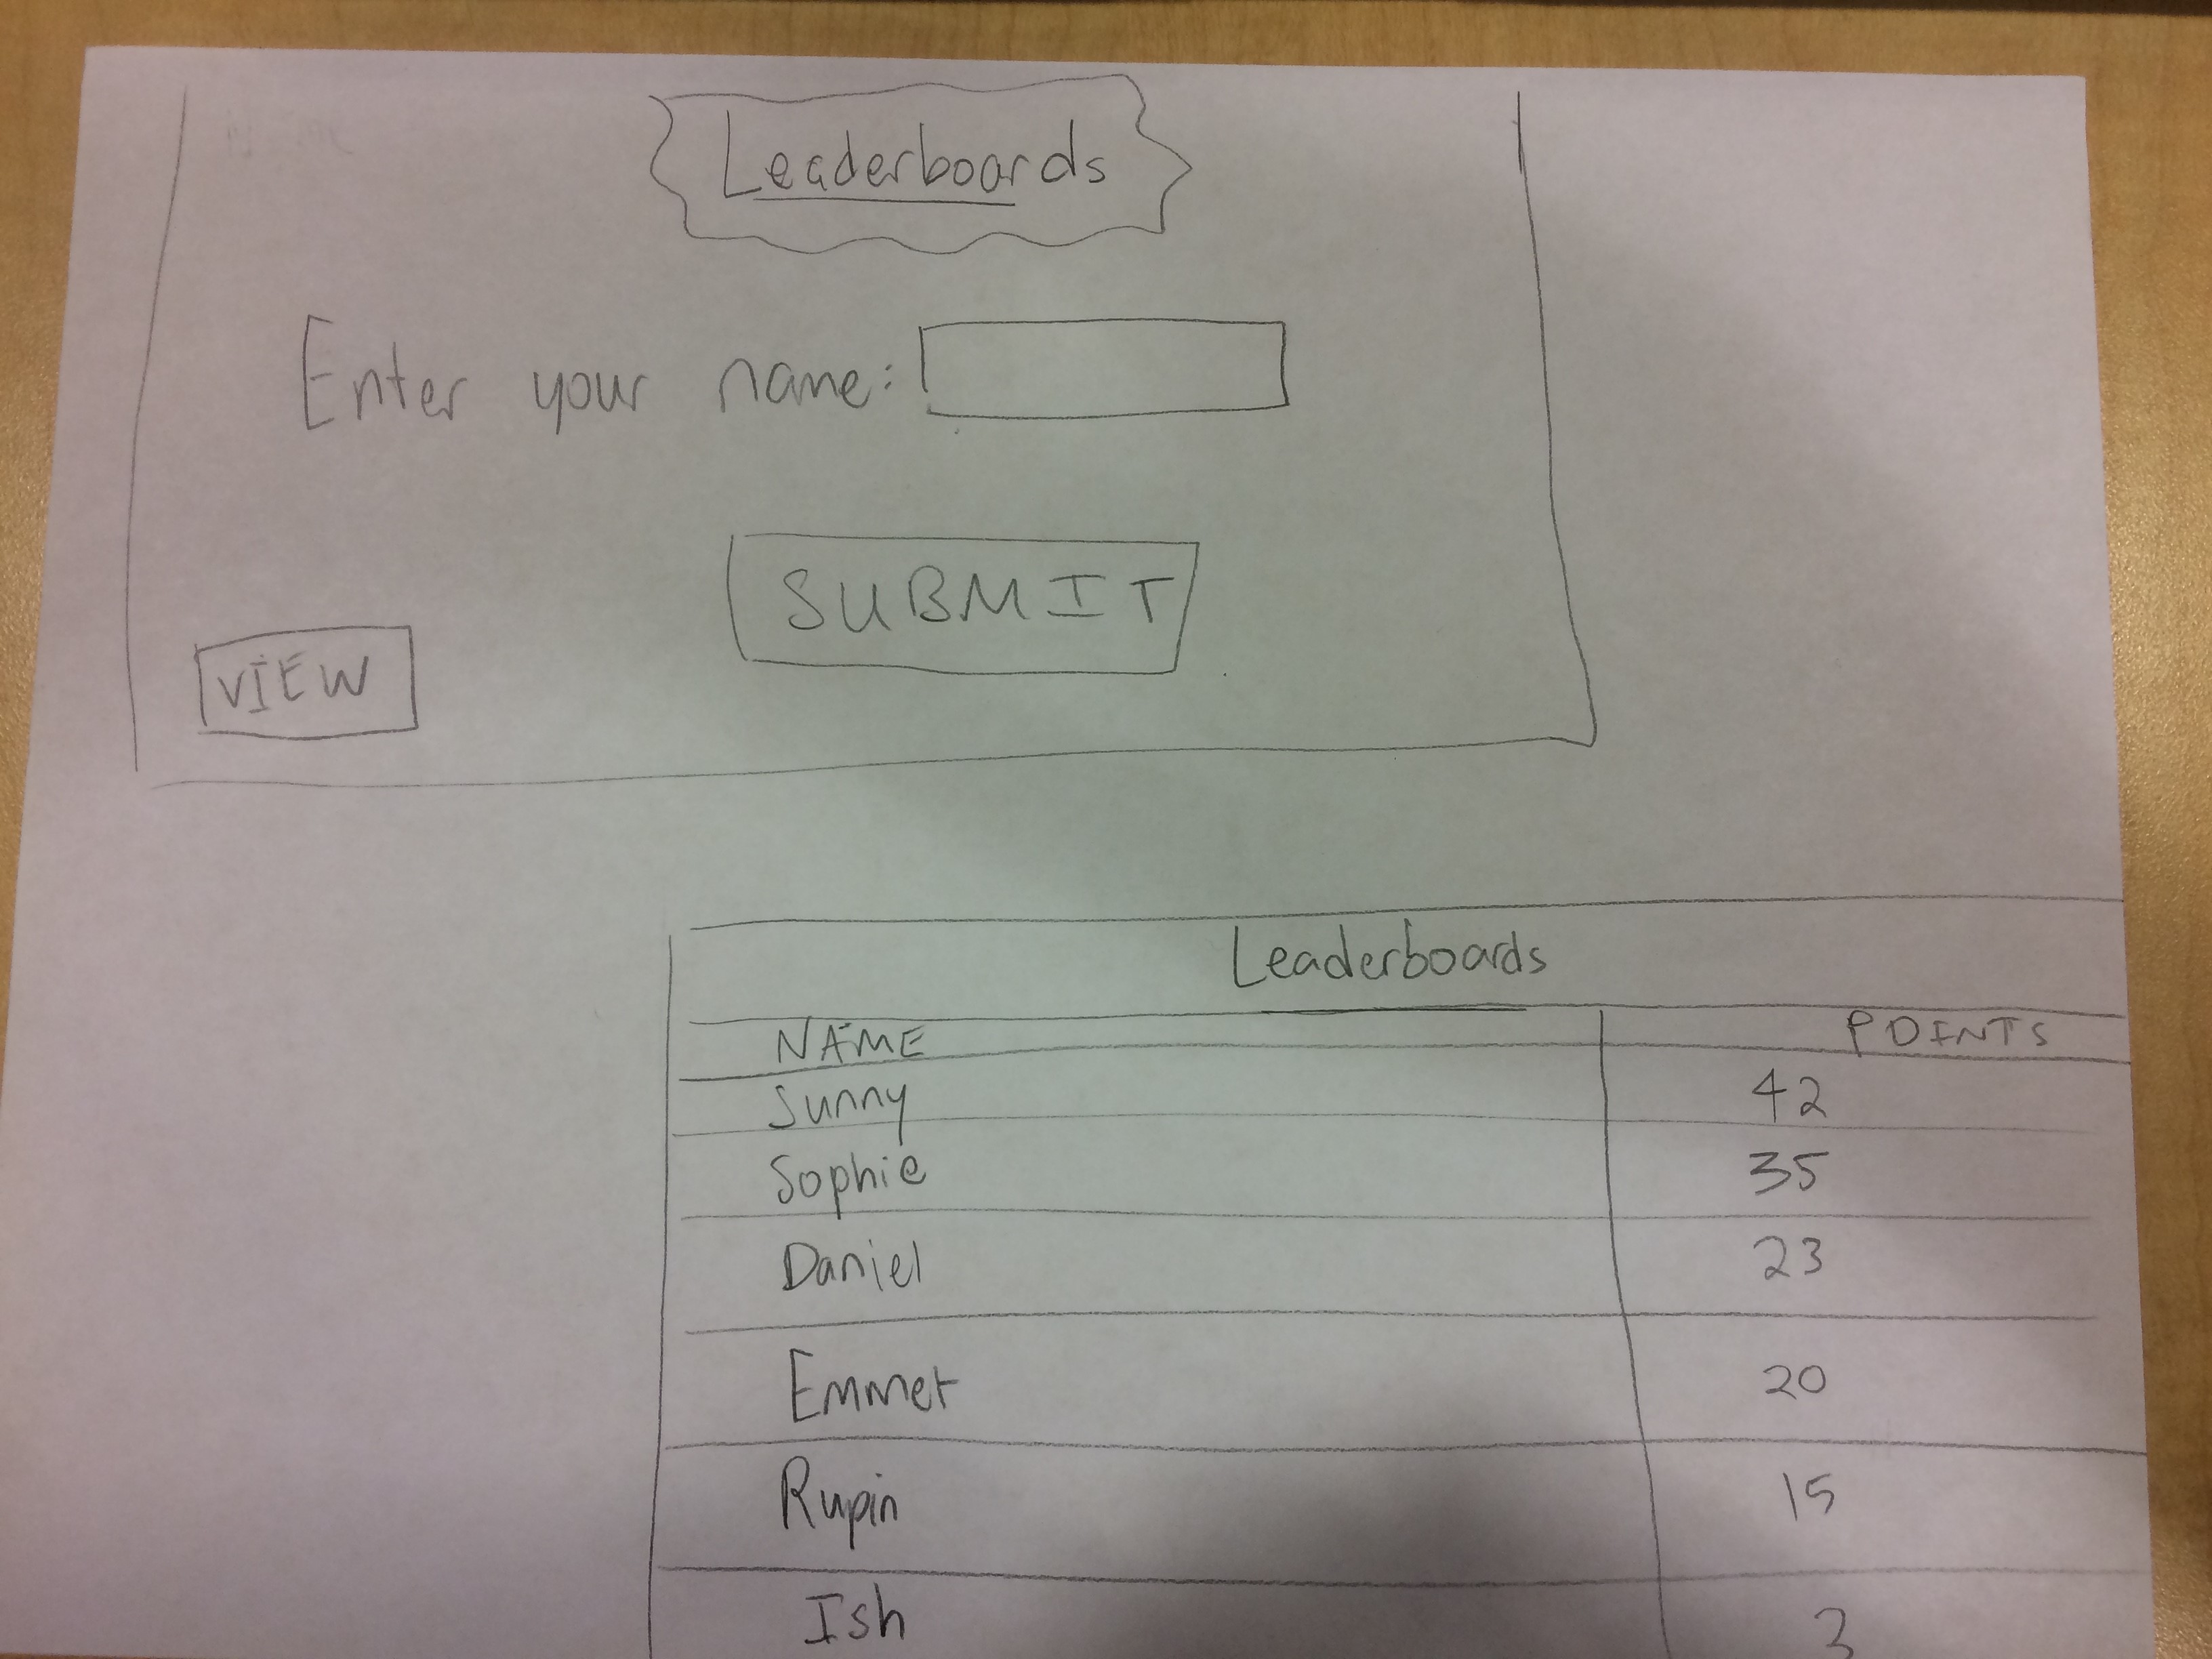 Leaderboards
Enter your name:
SUBMIT
VIEW
Leaderboards
NAME POINTS
Sunny 42
Sophie 35
Daniel 23
Emmet 20
Rupin 15
Ish